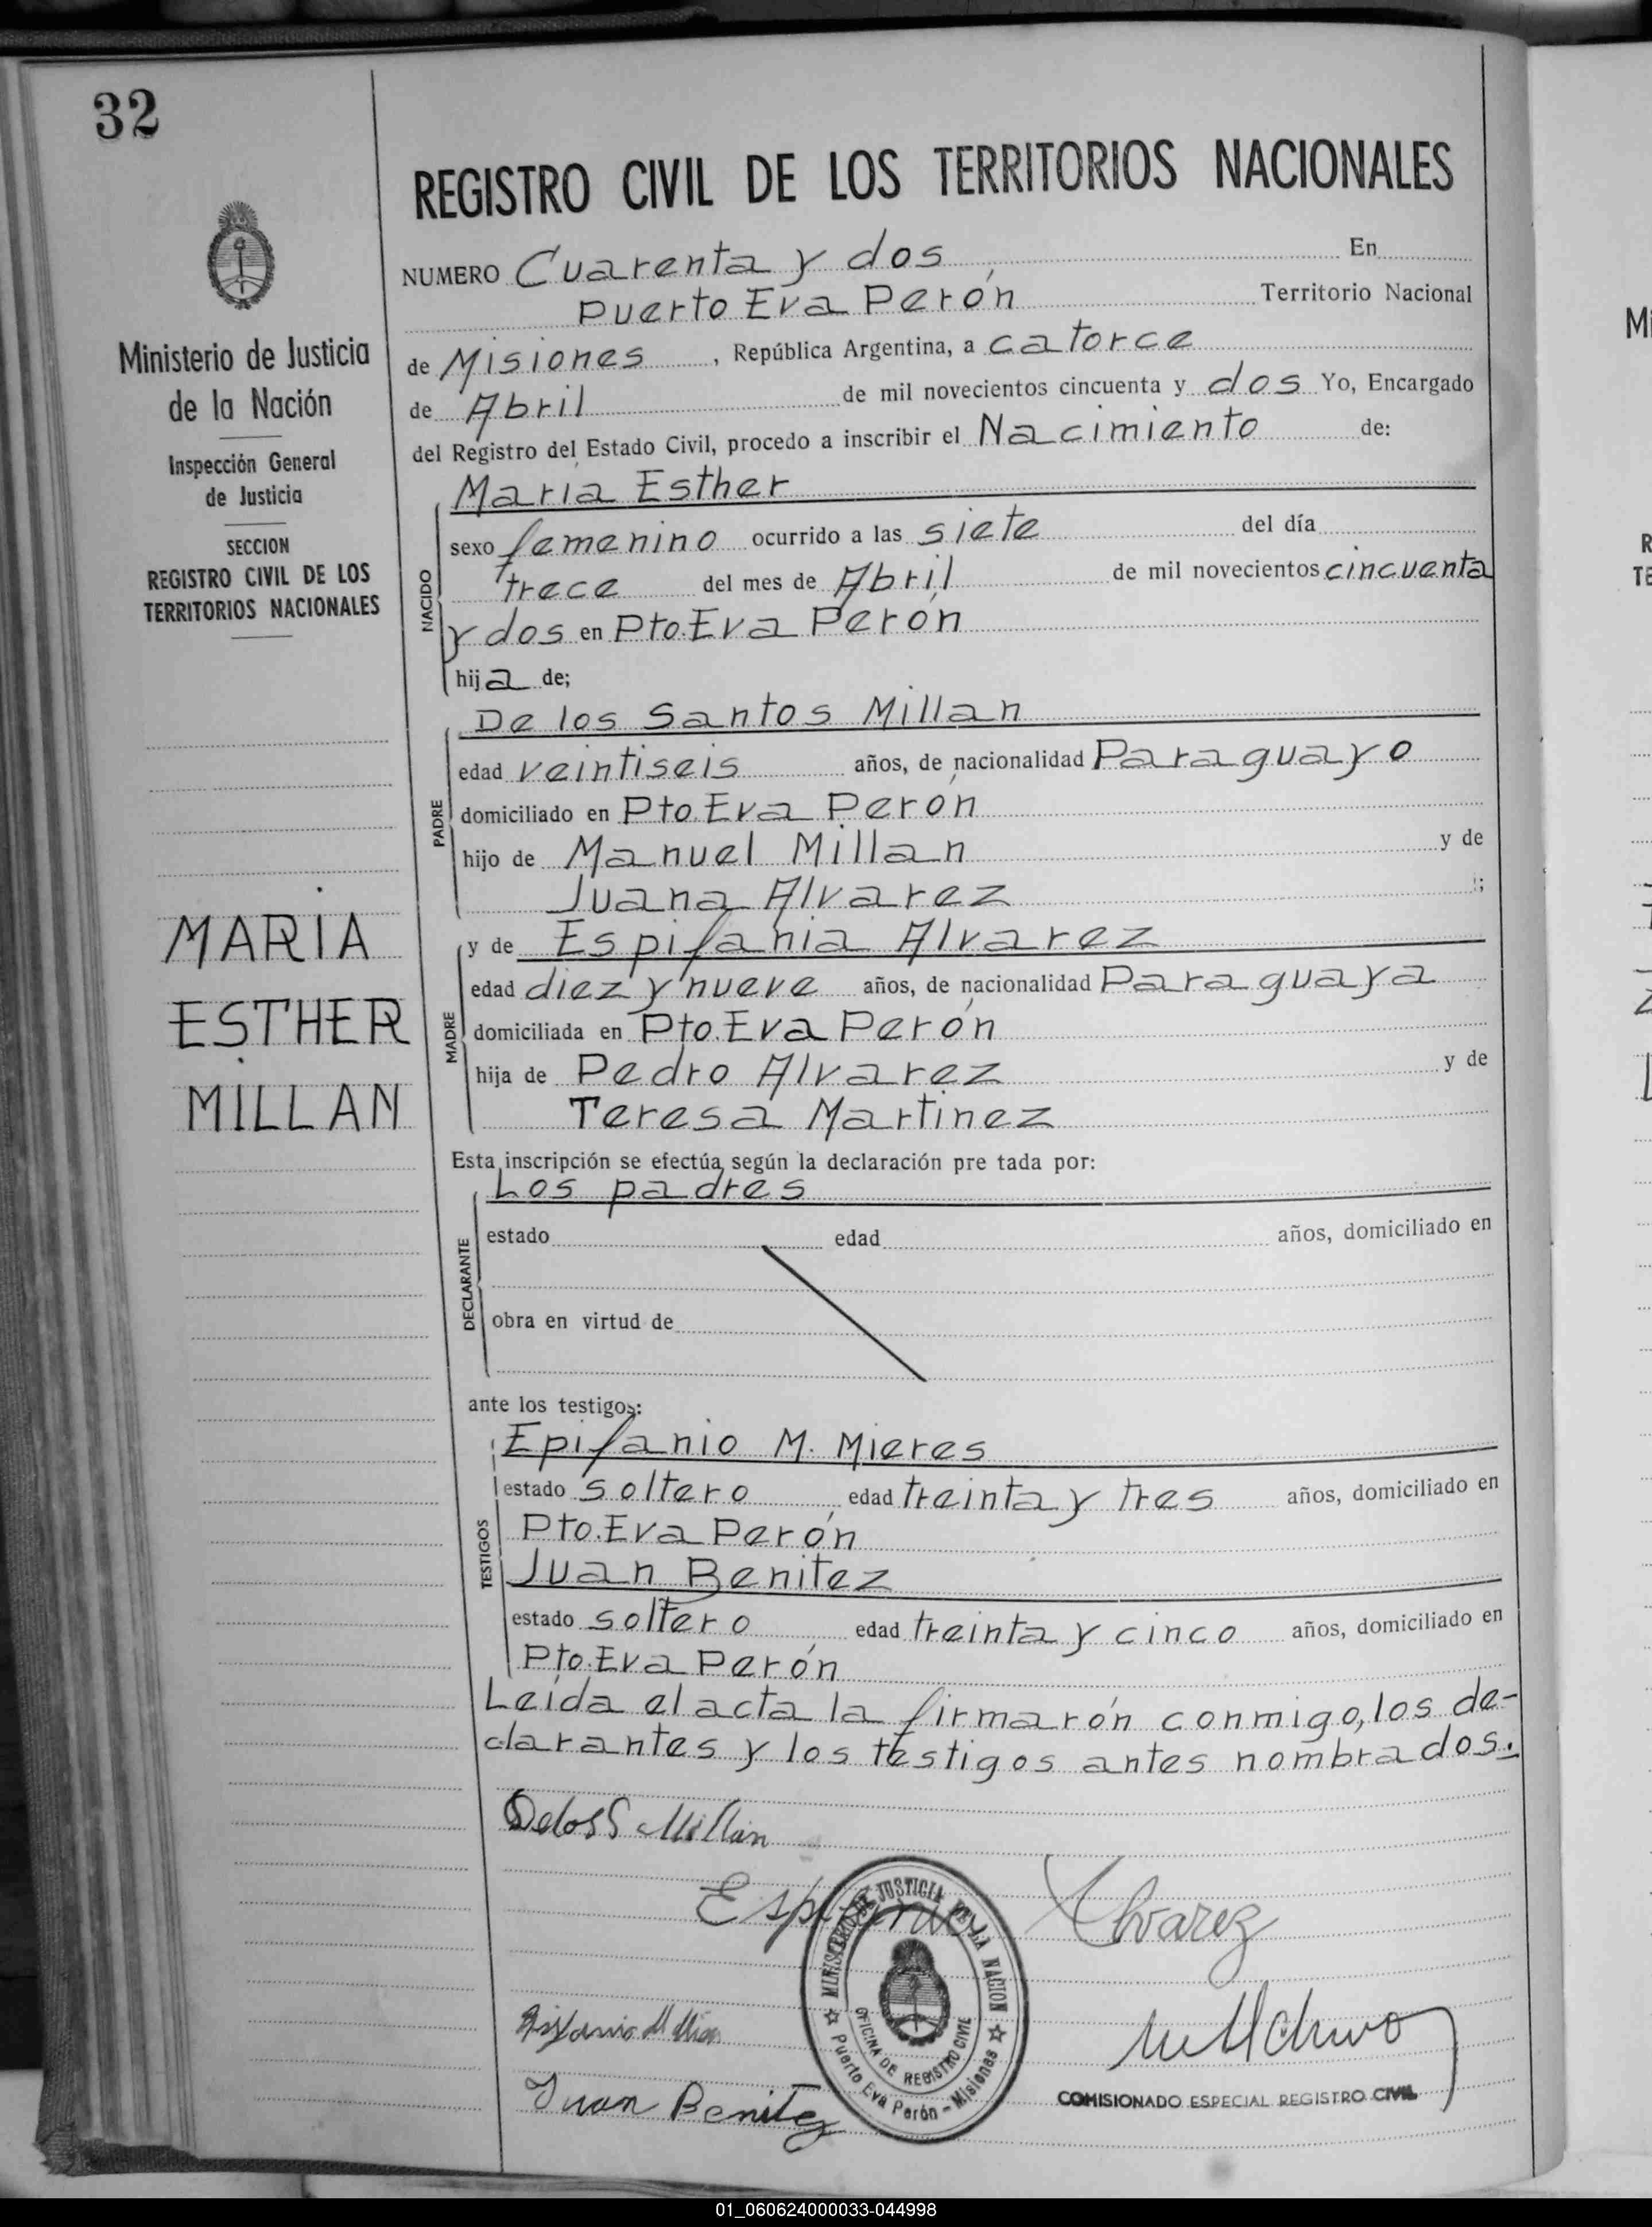 32
Ministerio de Justicia
de la Nación
Inspección General
de Justicia
SECCION
REGISTRO CIVIL DE LOS
TERRITORIOS NACIONALES
MARIA
ESTHER
MILLAN
REGISTRO CIVIL DE LOS TERRITORIOS NACIONALES
NUMERO Cuarenta y dos, En
Puerto Eva Perón Territorio Nacional
de Misiones, República Argentina, a catorce
de Abril de mil novecientos cincuenta y dos Yo, Encargado
del Registro del Estado Civil, procedo a inscribir el Nacimiento de:
María Esther
NACIDO
sexo femenino ocurrido a las siete del día
trece del mes de Abril de mil novecientos cincuenta
y dos en Pto. Eva Perón
hija de;
De los Santos Millan
PADRE
edad veintiseis años, de nacionalidad Paraguayo
domiciliado en Pto. Eva Perón
hijo de Manuel Millan y de
Juana Alvarez ;
y de Espifania Alvarez
MADRE
edad diez y nueve años, de nacionalidad Paraguaya
domiciliada en Pto. Eva Perón
hija de Pedro Alvarez y de
Teresa Martinez
Esta inscripción se efectúa según la declaración pre tada por:
Los padres
DECLARANTE
estado edad años, domiciliado en
obra en virtud de
ante los testigos:
Epifanio M. Mieres
TESTIGOS
estado soltero edad treinta y tres años, domiciliado en
Pto. Eva Perón
Juan Benitez
estado soltero edad treinta y cinco años, domiciliado en
Pto. Eva Perón
Leída el acta la firmarón conmigo, los de-
clarantes y los testigos antes nombrados.
Delos S Millan
Espifania Alvarez
MINISTERIO DE JUSTICIA DE LA NACION
OFICINA DE REGISTRO CIVIL
Puerto Eva Perón - Misiones
Juan Benitez
COMISIONADO ESPECIAL REGISTRO CIVIL
01_060624000033-044998